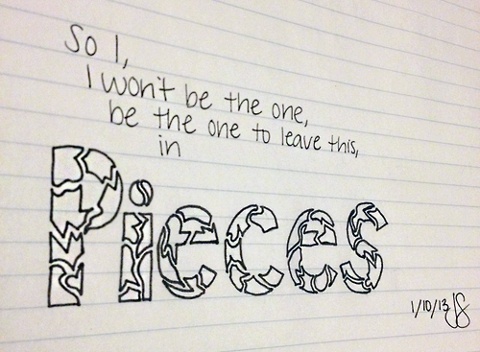 So I,
I won't be the one,
be the one to leave this,
in
Pieces
1/10/13